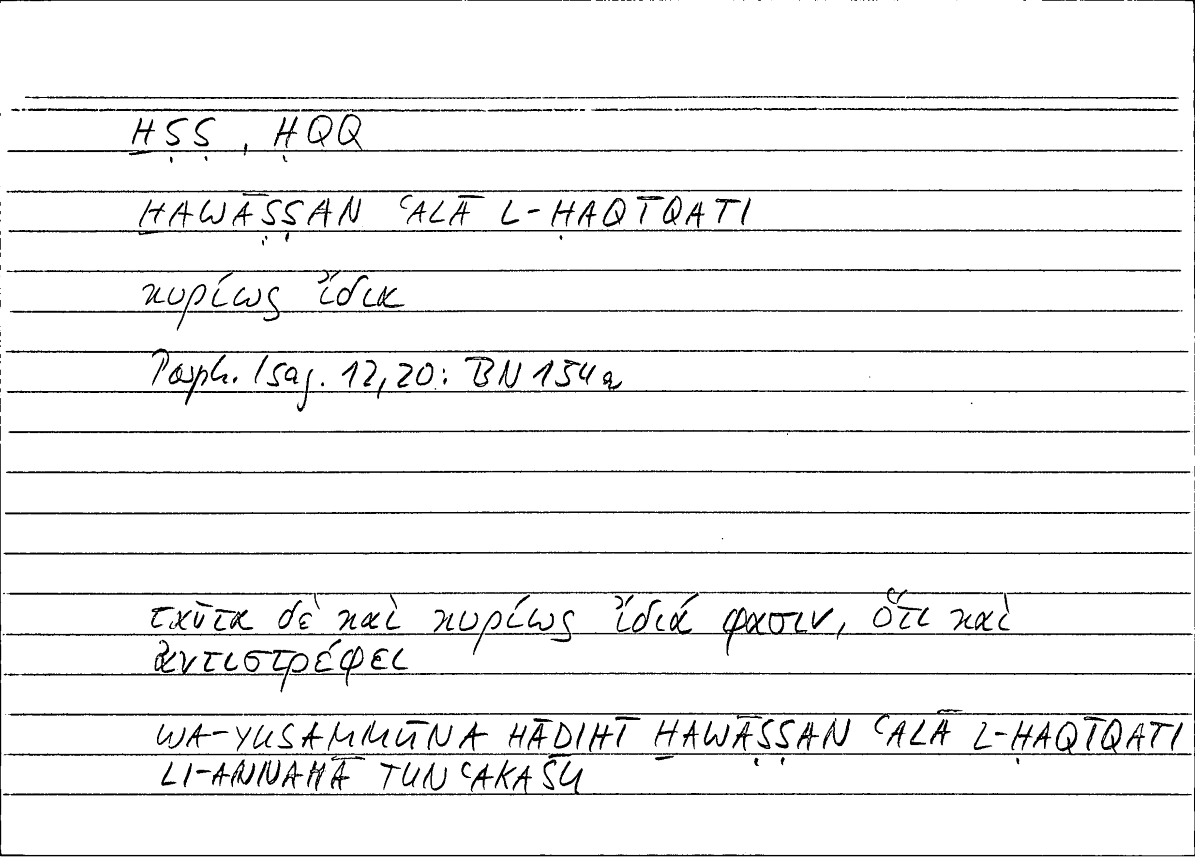 ḪṢṢ, ḤQQ
ḪAWĀṢṢAN ʿALĀ L-ḤAQĪQATI
κυρίως ἴδια
Porph. Isag. 12,20: BN 154a
ταῦτα δὲ καὶ κυρίως ἴδιά φασιν, ὅτι καὶ
ἀντιστρέφει
WA-YUSAMMŪNA HĀDIHĪ ḪAWĀṢṢAN ʿALĀ L-ḤAQĪQATI
LI-ANNAHĀ TUNʿAKASŪ